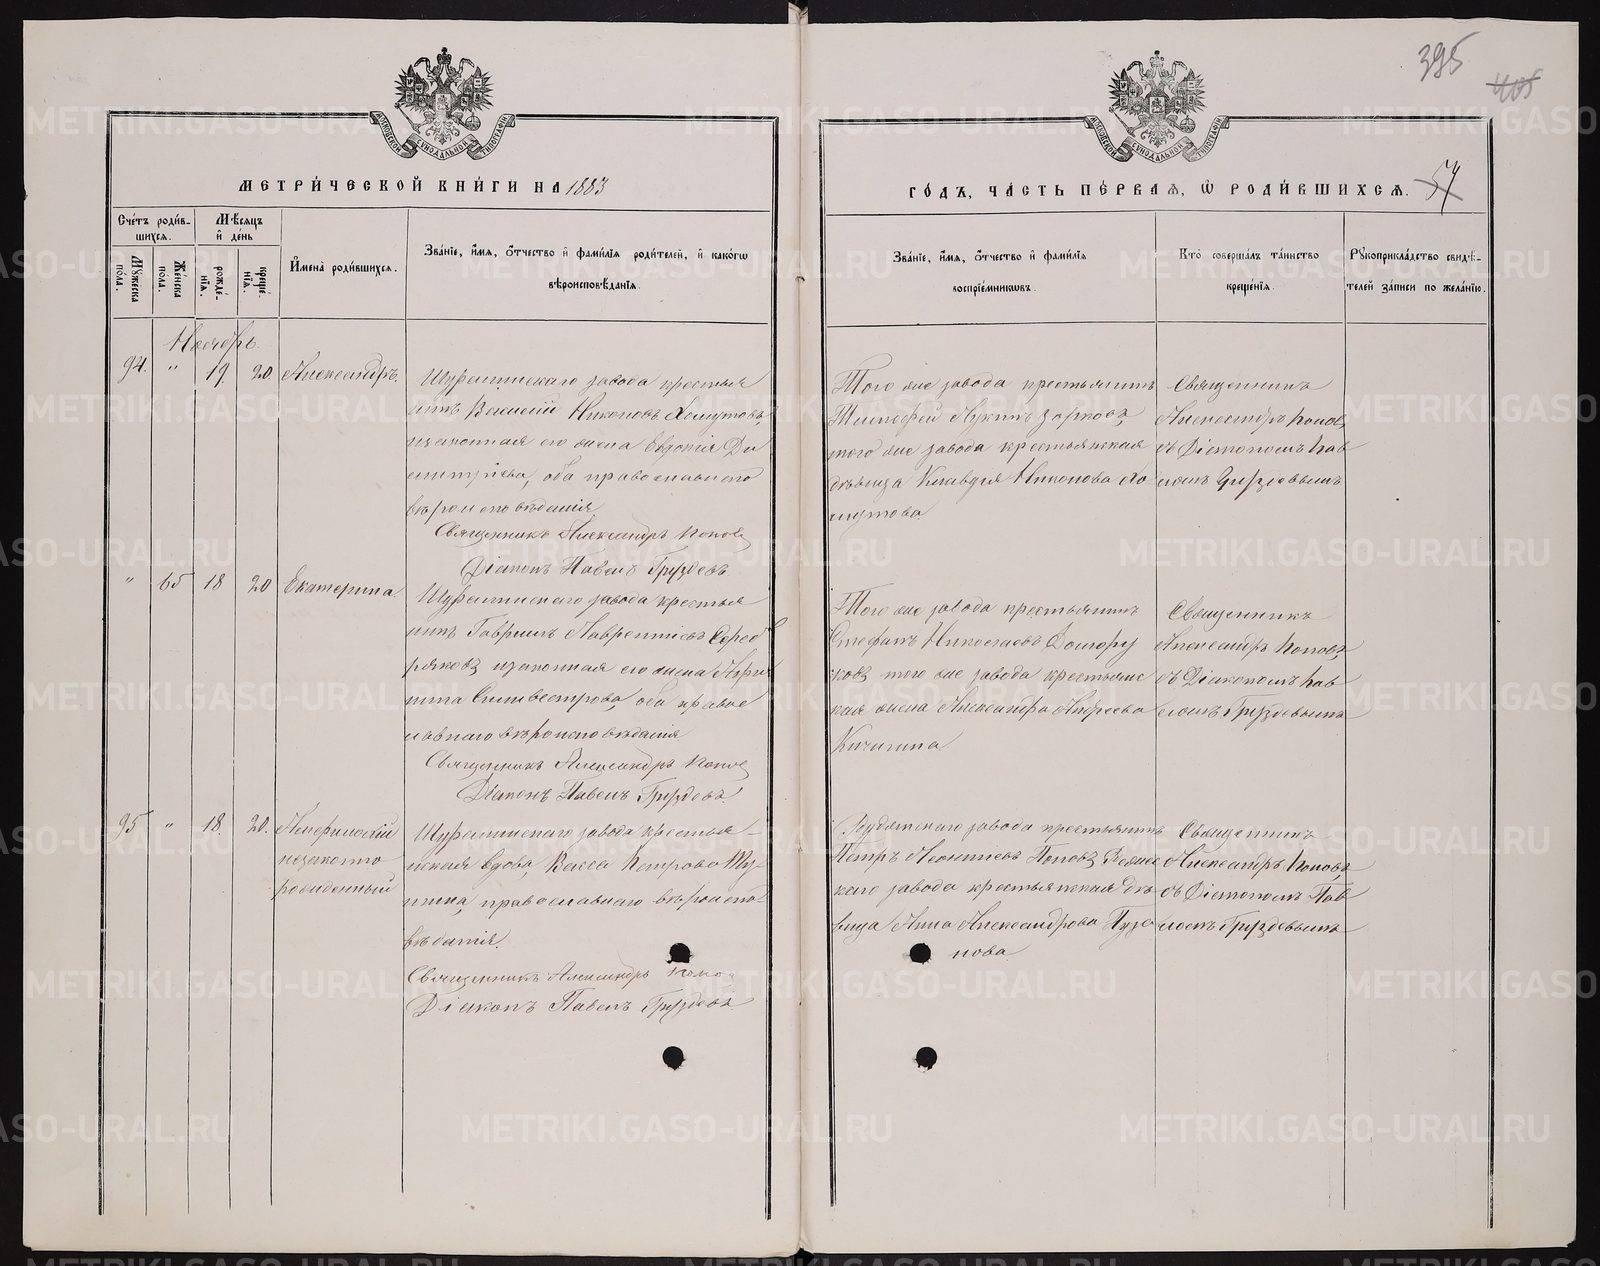 395
405
МЕТРИЧЕСКОЙ КНИГИ НА 1883
ГОДЪ, ЧАСТЬ ПЕРВАЯ, Ѡ РОДИВШИХСЯ.
57
Счетъ родив-
шихся.
Мѣсяцъ
и день
Мужеска
пола.
Женска
пола.
рожде-
нія.
креще-
нія.
Имена родившихся.
Званіе, имя, отчество и фамилія родителей, и какогѡ
вѣроисповѣданія.
Званіе, имя, отчество и фамилія
воспріемниковъ.
Кто совершалъ таинство
крещенія.
Рукоприкладство свидѣ-
телей записи по желанію.
Ноябрь.
94. " 19 20 Александръ.
Шуралинскаго завода крестья
нинъ Василій Никоновъ Хомутовъ,
и законная его жена Евдокія Ди
митріева, оба православнаго
вѣроисповѣданія.
Священникъ Александръ Попов
Діаконъ Павелъ Груздевъ
Того же завода крестьянинъ
Тимофей Лукинъ
того же завода крестьянская
дѣвица Клавдія Никонова Хо
мутова.
Священникъ
Александръ Попов,
съ Діакономъ Пав
ломъ Груздевымъ
" 65 18 20 Екатерина
Шуралинскаго завода крестья
нинъ Гавриилъ Лаврентьевъ Сереб
ряковъ и законная его жена
Сильвестрова, оба правос
лавнаго вѣроисповѣданія
Священникъ Александръ Попов
Діаконъ Павелъ Груздевъ.
Того же завода крестьянинъ
Стефанъ Николаевъ
того же завода крестьянс
кая жена Александра Андреева
Кичигина
Священникъ
Александръ Поповъ,
съ Діакономъ Пав
ломъ Груздевымъ
95 " 18. 20.
незаконно
рожденный
Шуралинскаго завода крестья-
нская вдова, Васса Петрова
православнаго вѣроиспо-
вѣданія.
Священникъ Александръ Попо
Діаконъ Павелъ Груздевъ.
завода крестьянинъ
Петръ Леонтьевъ Поповъ
каго завода крестьянская дѣ-
вица Анна Александрова Пуза
нова
Священникъ
Александръ Поповъ,
съ Діакономъ Пав
ломъ Груздевымъ
METRIKI.GASO-URAL.RU